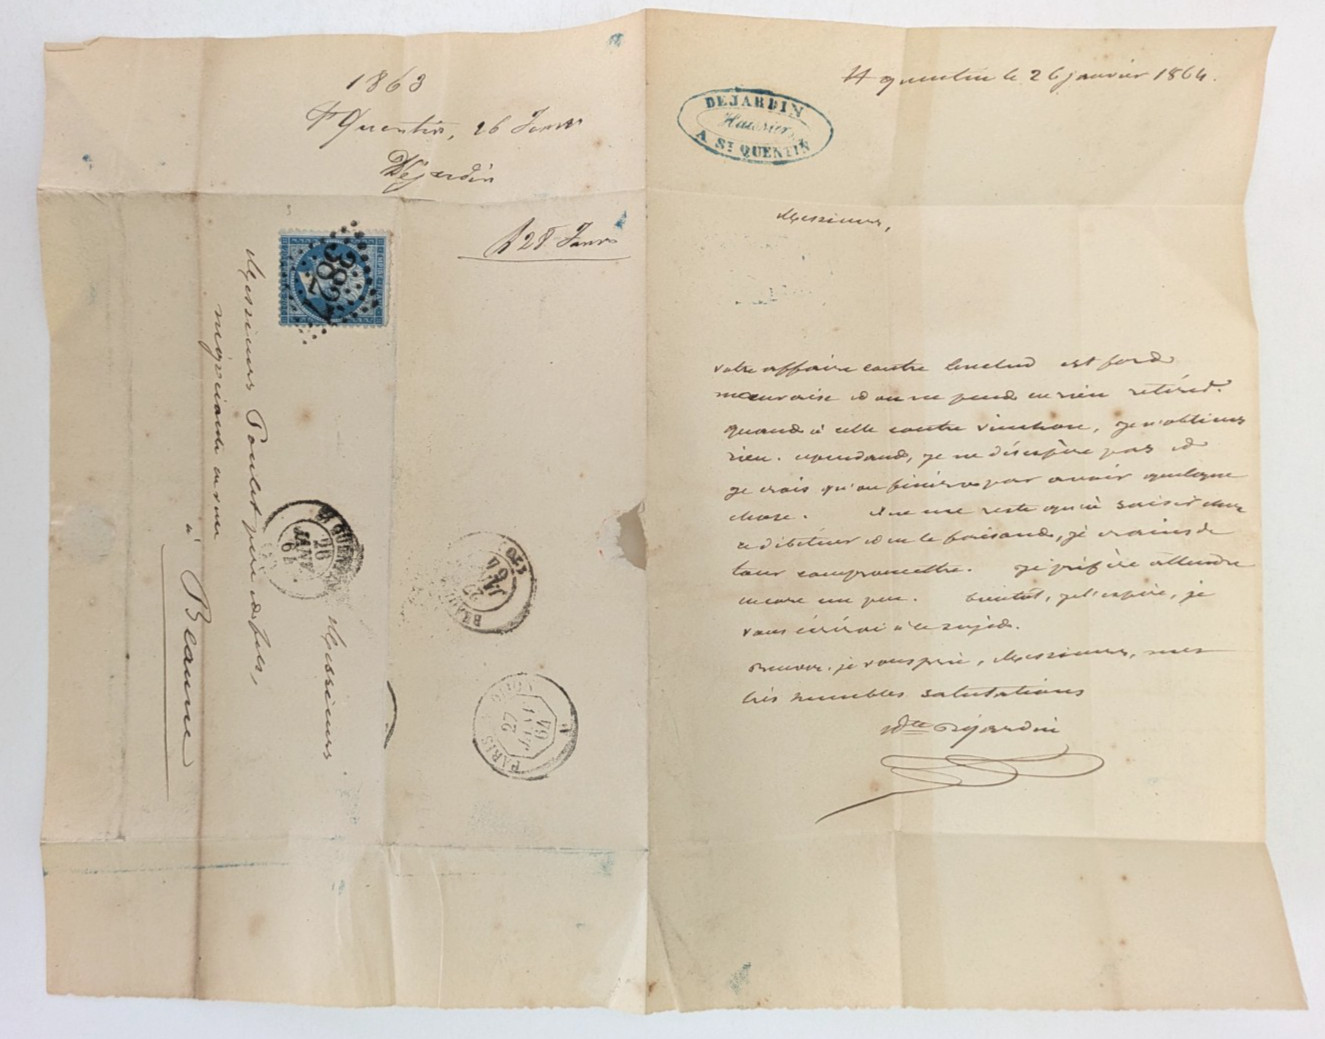 1863
St Quentin, 26 Janv
Déjardin
R 28 Janv
382
Messieurs
Messieurs Poulet père et fils,
négociants en vins
à Beaune
St QUENTIN
26
JANV
64
BEAUNE
27
JANV
64
PARIS
27
JANV
64
St quentin le 26 janvier 1864.
DEJARDIN
Huissier,
A ST QUENTIN
Messieurs,
votre affaire contre est fort
mauvaise et on ne peut en rien retirer.
quand à celle contre vinchon, je n'obtiens
rien. cependant, je ne désespère pas et
je crois qu'on finira par avoir quelque
chose. il ne me reste qu'à saisir chez
le débiteur et en le faisant, je crains de
tout compromettre. je préfère attendre
encore un peu. bientôt, je l'espère, je
vous écrirai à ce sujet.
Recevez, je vous prie, Messieurs, mes
très humbles salutations
Déjardin